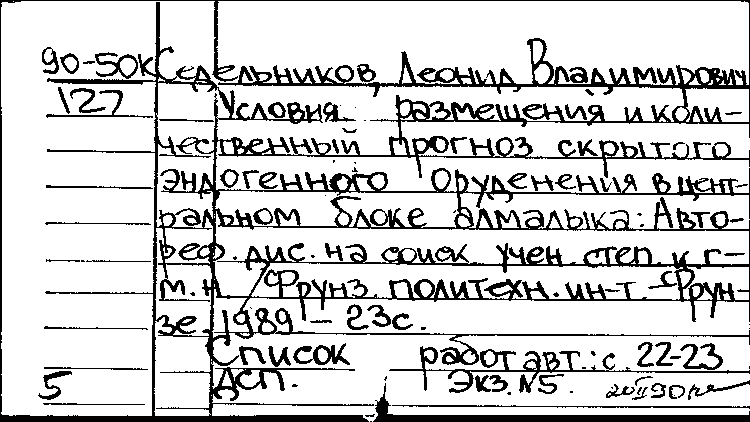 90-50К Седельников, Леонид Владимирович
127 Условия размещения и коли-
чественный прогноз скрытого
эндогенного оруденения в цент-
ральном блоке алмалыка: Авто-
реф. дис. на соиск. учен. степ. к г-
м. н. Фрунз. политехн. ин-т. - Фрун-
зе. 1989. - 23с.
Список работ авт.: с. 22-23
5 ДСП. Экз. №5.